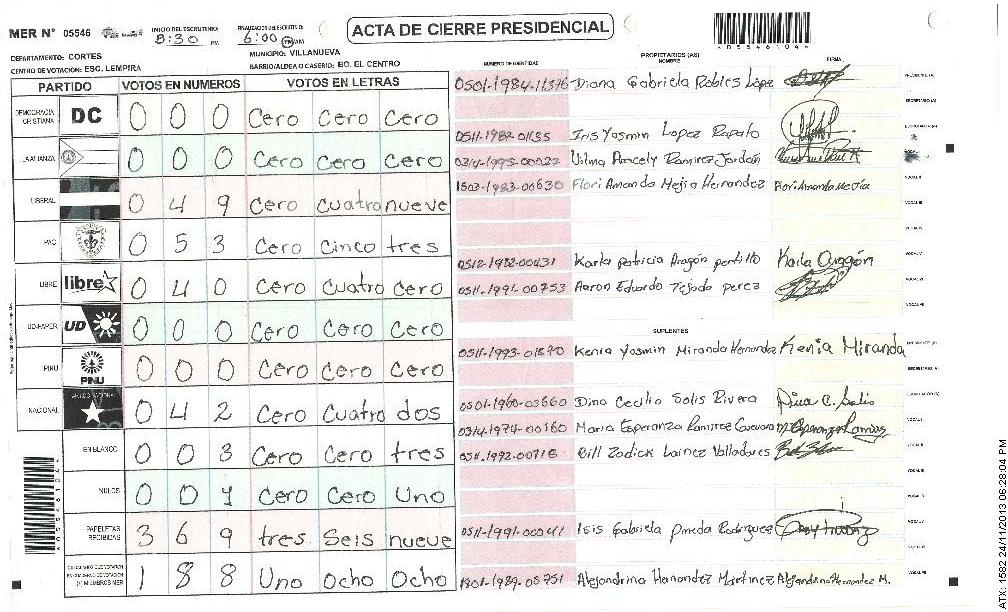 MER N° 05546
INICIO DEL ESCRUTINIO:
8:30 PM
FINALIZACION DEL ESCRUTINIO:
6:00 PM/AM
ACTA DE CIERRE PRESIDENCIAL
*055461044*
DEPARTAMENTO: CORTES
MUNICIPIO: VILLANUEVA
CENTRO DE VOTACION: ESC. LEMPIRA
BARRIO/ALDEA O CASERIO: BO. EL CENTRO
PARTIDO VOTOS EN NUMEROS VOTOS EN LETRAS
DEMOCRACIA CRISTIANA DC 0 0 0 Cero Cero Cero
LA ALIANZA 0 0 0 Cero Cero Cero
LIBERAL 0 4 9 Cero Cuatro nueve
PAC 0 5 3 Cero Cinco tres
LIBRE libre 0 4 0 Cero Cuatro Cero
UD-FAPER UD 0 0 0 Cero Cero Cero
PINU PINU 0 0 0 Cero Cero Cero
NACIONAL PARTIDO NACIONAL 0 4 2 Cero Cuatro dos
EN BLANCO 0 0 3 Cero Cero tres
NULOS 0 0 1 Cero Cero Uno
PAPELETAS RECIBIDAS 3 6 9 tres Seis nueve
1 8 8 Uno Ocho Ocho
NUMERO DE IDENTIDAD
PROPIETARIOS (AS)
NOMBRE
FIRMA
0501-1984-11376 Diana Gabriela Robles López
PRESIDENTE (A)
SECRETARIO (A)
0511-1982-01135 Iris Yasmin Lopez Rapalo
ESCRUTADOR (A)
0314-1995-00022 Vilma Arocely Ramirez Jordán
1503-1983-00630 Flori Amanda Mejia Hernandez Flori Amanda Mejia
0512-1982-00431 Karla Patricia Aragón portillo Karla Aragón
0511-1991-00753 Aaron Eduardo Tejada perez
SUPLENTES
0511-1993-01870 Kenia Yosmin Miranda Hernandez Kenia Miranda
0501-1960-03660 Dina Cecilia Solis Rivera Dina C. Solis
0314-1974-00160 Maria Esperanza Ramirez
0511-1992-00716 Bill Zadick Lainez Valladores
0511-1991-00041 Isis Gabriela Pineda Rodriguez
1801-1989-05751 Alejandrina Hanandez Martinez Alejandrina Hernandez M.
ATX: 1582 24/11/2013 06:28:04 PM